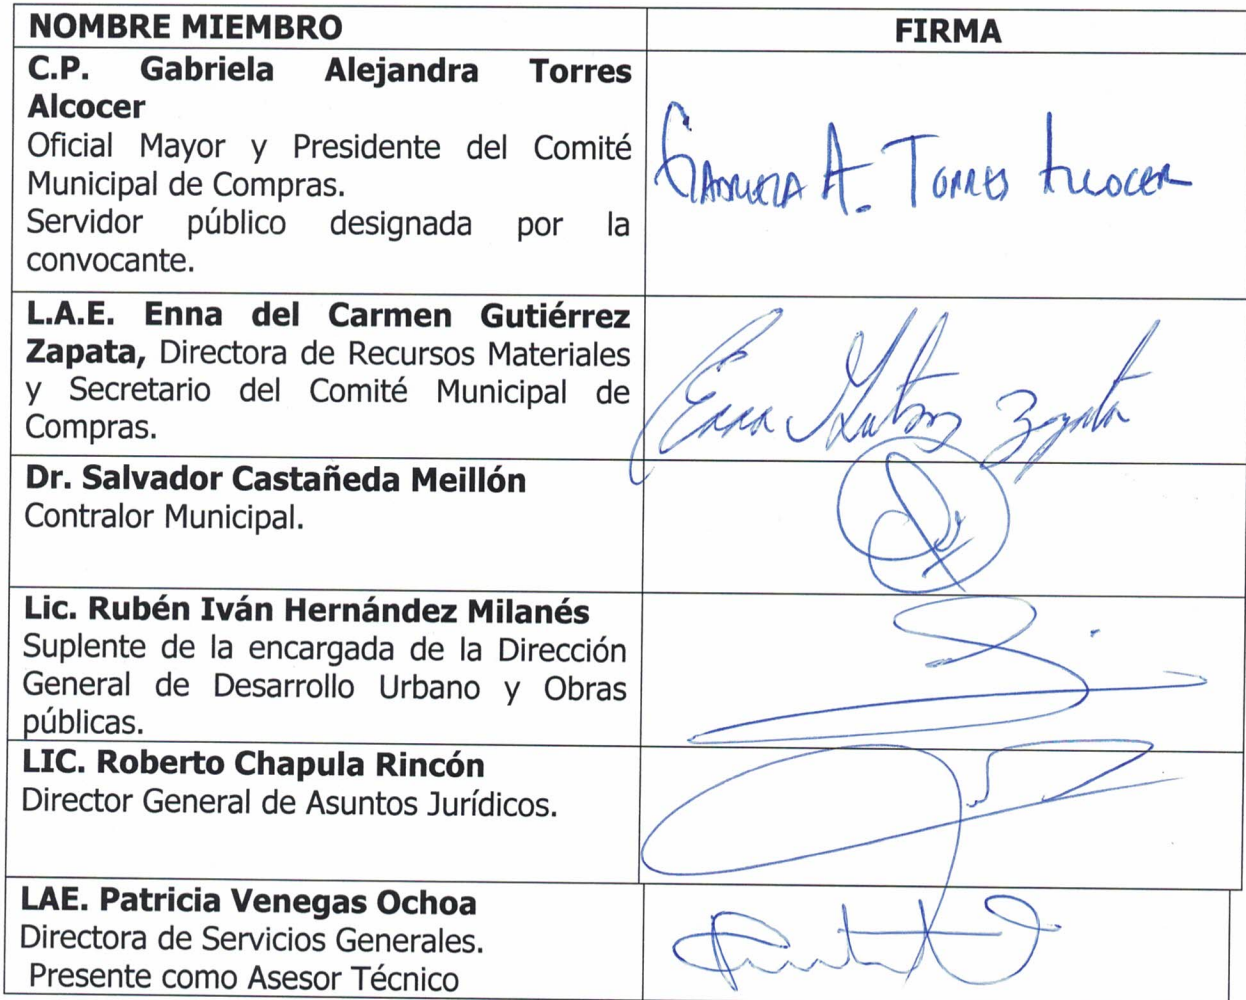 NOMBRE MIEMBRO
FIRMA
C.P. Gabriela Alejandra Torres
Alcocer
Oficial Mayor y Presidente del Comité
Municipal de Compras.
Servidor público designada por la
convocante.
Gabriela A. Torres Alcocer
L.A.E. Enna del Carmen Gutiérrez
Zapata, Directora de Recursos Materiales
y Secretario del Comité Municipal de
Compras.
Enna Zapata
Dr. Salvador Castañeda Meillón
Contralor Municipal.
Lic. Rubén Iván Hernández Milanés
Suplente de la encargada de la Dirección
General de Desarrollo Urbano y Obras
públicas.
LIC. Roberto Chapula Rincón
Director General de Asuntos Jurídicos.
LAE. Patricia Venegas Ochoa
Directora de Servicios Generales.
Presente como Asesor Técnico